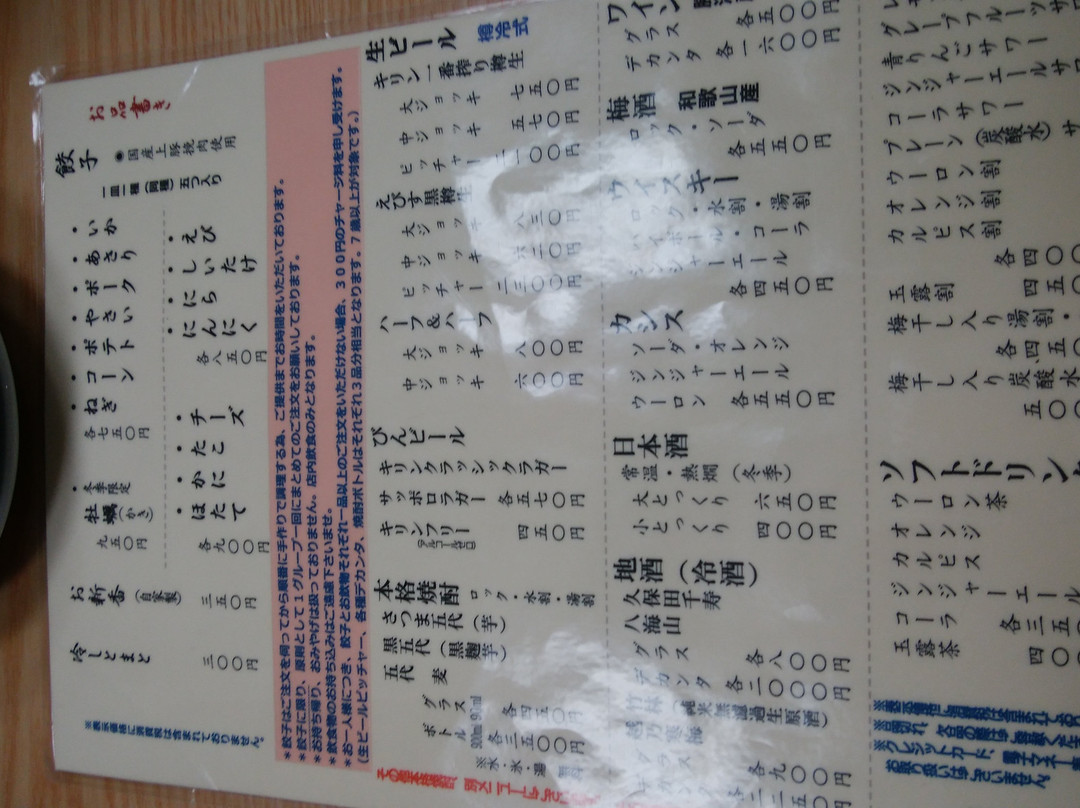 お品書き
餃子
●国産上豚挽肉使用
一皿一種(同種)五つ入り
・いか
・あさり
・ポーク
・やさい
・ポテト
・コーン
・ねぎ
各七五〇円
・冬季限定
牡蠣(かき)
九五〇円
・えび
・しいたけ
・にら
・にんにく
各八五〇円
・チーズ
・たこ
・かに
・ほたて
各九〇〇円
お新香(自家製)
三五〇円
冷しとまと
三〇〇円
※表示価格に消費税は含まれておりません。
*餃子はご注文を伺ってから順番に手作りで調理する為、ご提供までお時間をいただいております。
*餃子に限り、原則として1グループ一回にまとめてのご注文をお願いしております。
*お持ち帰り、おみやげは扱っておりません。店内飲食のみとなります。
*飲食物のお持ち込みはご遠慮下さいませ。
*お一人様につき、餃子とお飲物それぞれ一品以上のご注文をいただけない場合、300円のチャージ料を申し受けます。
(生ビールピッチャー、各種デカンタ、焼酎ボトルはそれぞれ3品分相当となります。7歳以上が対象です。)
生ビール 樽冷式
キリン一番搾り樽生
大ジョッキ 七五〇円
中ジョッキ 五七〇円
ピッチャー 二一〇〇円
えびす黒樽生
大ジョッキ 八三〇円
中ジョッキ 六二〇円
ピッチャー 二三〇〇円
ハーフ&ハーフ
大ジョッキ 八〇〇円
中ジョッキ 六〇〇円
びんビール
キリンクラッシックラガー
サッポロラガー 各五七〇円
キリンフリー 四五〇円
アルコールゼロ
本格焼酎 ロック・水割・湯割
さつま五代(芋)
黒五代(黒麹芋)
五代 麦
グラス 90ml 各四五〇円
ボトル 900ml 各三五〇〇円
※水・氷・湯
ワイン
グラス 各五〇〇円
デカンタ 各一六〇〇円
梅酒 和歌山産
ロック・ソーダ
各五五〇円
ウイスキー
ロック・水割・湯割
ハイボール・コーラ
ジンジャーエール
各四五〇円
カシス
ソーダ・オレンジ
ジンジャーエール
ウーロン 各五五〇円
日本酒
常温・熱燗(冬季)
大とっくり 六五〇円
小とっくり 四〇〇円
地酒(冷酒)
久保田千寿
八海山
グラス 各八〇〇円
デカンタ 各二〇〇〇円
越乃寒梅
グラス 各九〇〇円
グレープフルーツサワー
青りんごサワー
ジンジャーエールサワー
コーラサワー
プレーン(炭酸水)サ
ウーロン割
オレンジ割
カルピス割
各四〇〇
玉露割 四五〇
梅干し入り湯割・
各四五〇
梅干し入り炭酸水
五〇〇
ソフトドリン
ウーロン茶
オレンジ
カルピス
ジンジャーエール
コーラ 各三五
玉露茶 四〇